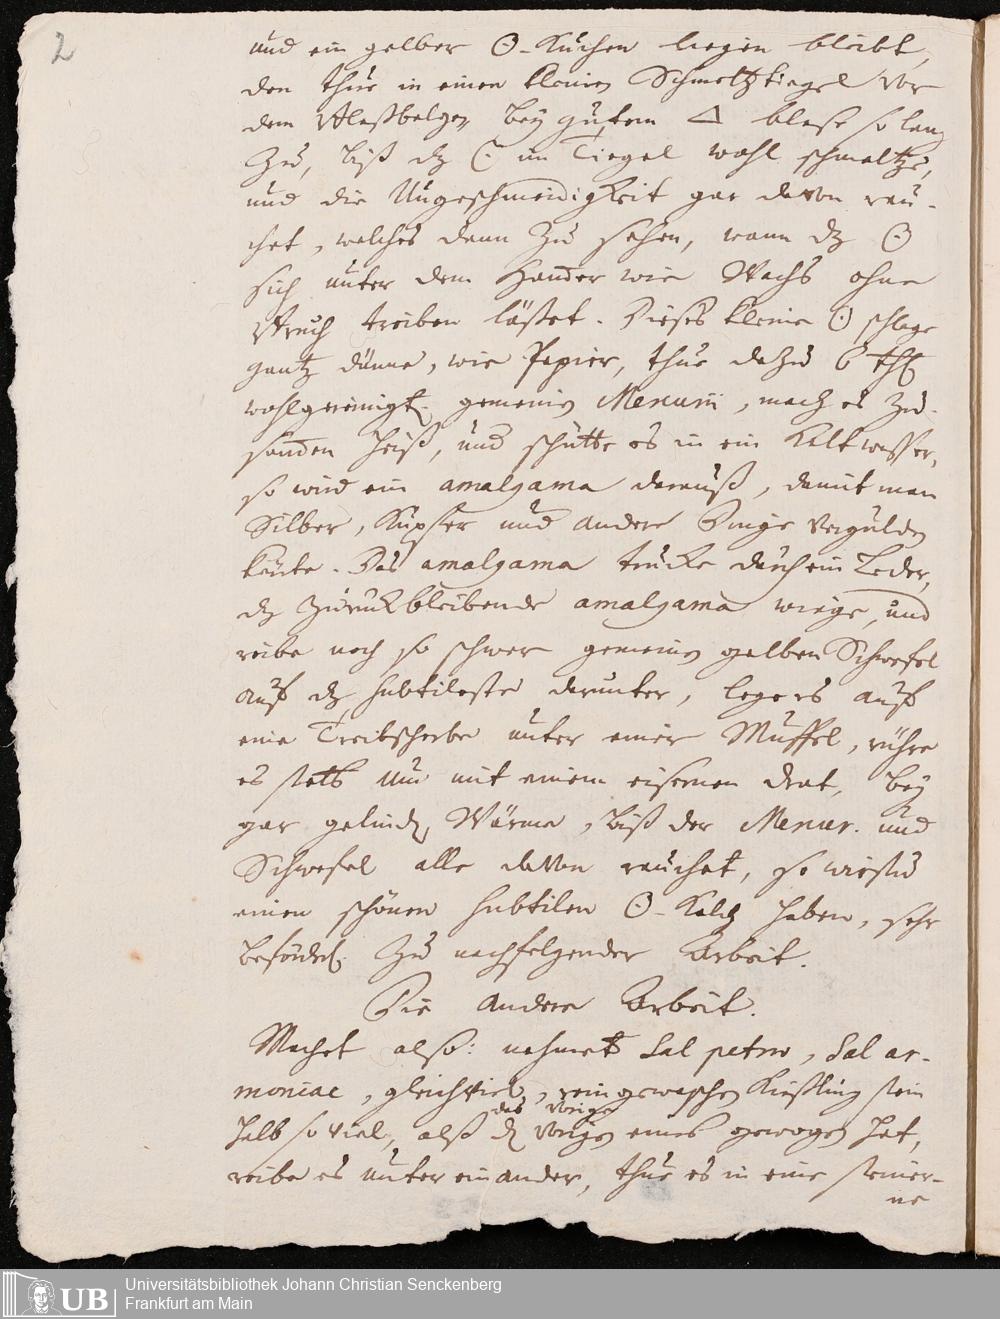 2
und ein gelber ☉-Kuchen liegen bleibt,
den thue in einen kleinen Schmeltztiegel vor
dem Blaßbalgen bey gutem △ blase so lang
zu, biß dz ☉ im Tiegel wohl schmeltze,
und die Ungeschmeidigkeit gar davon rau-
chet, welches dann zu sehen, wann dz ☉
sich unter dem Hamer wie Wachs ohne
Bruch treiben läßet. Dieses kleine ☉ schlage
gantz dünne, wie Papier, thue dazu 6 thl
wohlgereinigt. gemeinen Mercurii, mach es zu-
samen heiß, und schütte es in ein kalt wasser,
so wird ein amalgama darauß, damit man
Silber, Kupffer und andere Dinge vergulden
könte. Das amalgama trucke durch ein Leder,
dz zurückbleibende amalgama wiege, und
reibe noch so schwer gemeinen gelben Schwefel
auf dz subtileste darunter, lege es auf
eine Treibscherbe unter einer Muffel, rühre
es stets um mit einem eisernen drat, bey
gar gelinder Wärme, biß der Mercur. und
Schwefel alle davon rauchet, so wirstu
einen schönen subtilen ☉-Kalch haben, sehr
beförderl. zu nachfolgender Arbeit.
Die andere Arbeit.
Machet also: nehmet Sal petrae, Sal ar-
moniac, gleichviel, rein gewaschen Kießling stein
das vorige
halb so viel, alß dz vorige eines gewogen hat,
reibe es unter einander, thue es in eine steiner-
ne
Universitätsbibliothek Johann Christian Senckenberg
Frankfurt am Main
UB